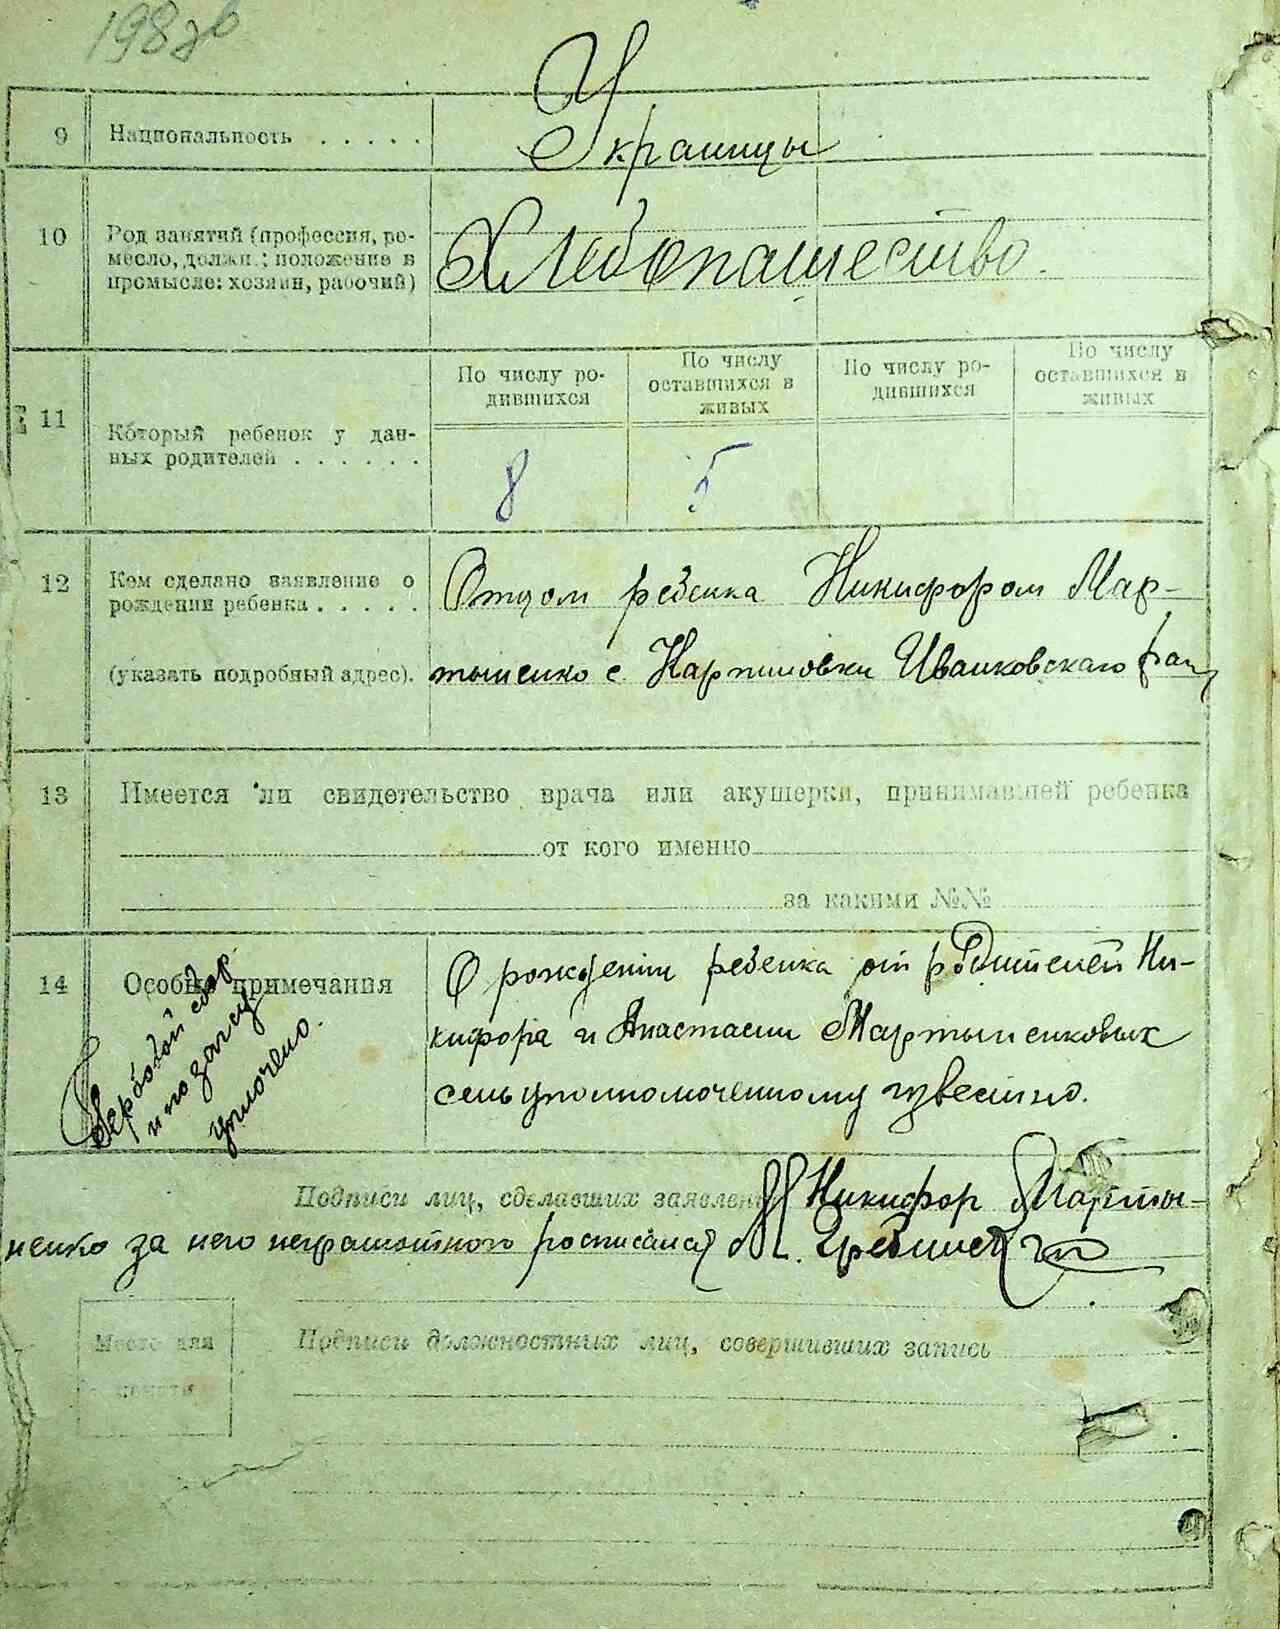 198зв
9 Национальность . . . . . Украинцы
10 Род занятий (профессия, ре-
месло, должн.: положение в
промысле: хозяин, рабочий)
Хлебопашество.
По числу ро-
дившихся
По числу
оставшихся в
живых
По числу ро-
дившихся
По числу
оставшихся в
живых
11 Который ребенок у дан-
ных родителей . . . . . .
8 5
12 Кем сделано заявление о
рождении ребенка . . . . .
(указать подробный адрес).
Отцом ребенка Никифором Мар-
тыненко с. Карпиловки Иванковскаго рай
13 Имеется ли свидетельство врача или акушерки, принимавшей ребенка
от кого именно
за какими №№
14 Особые примечания
Гербовой сбор
и по загсу
уплочено.
О рождении ребенка от родителей Ни-
кифора и Анастасии Мартыненковых
сельуполномоченному известно.
Подписи лиц, сделавших заявлен Никифор Марты-
ненко за него неграмотного росписался
Место для
печати
Подписи должностных лиц, совершивших запись